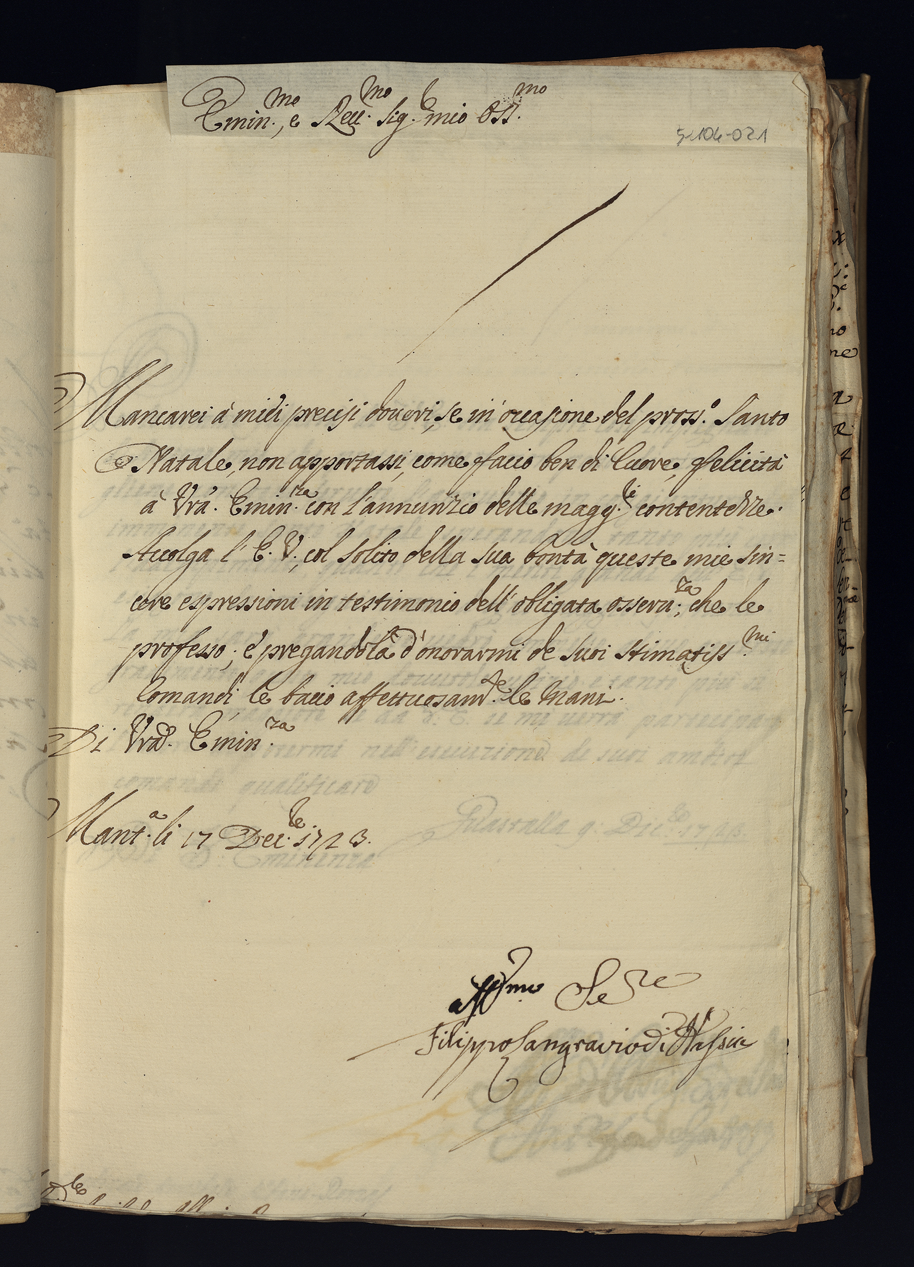 Emin.mo, e Reu.mo Sig.e mio Oss.mo
5-104-021
Mancarei à miei precisi doueri, se in occasione del pross.o Santo
Natale, non apportassi, come facio ben di Cuore, felicità
à Vrã. Emin.za con l'annunzio delle magg.ri contentezze.
Accolga l'E. V., col solito della sua bontà queste mie sin=
cere espressioni in testimonio dell'obligata osseru.za, che le
professo; e pregandola d'onorarmi de suoi stimatiss.mi
Comandi le bacio affettuosam.te le Mani.
Di Vrã. Emin.za
Mant.a li 17 Dec.bre 1723.
aff.mo Se.re
Filippo Langravio di Hassia